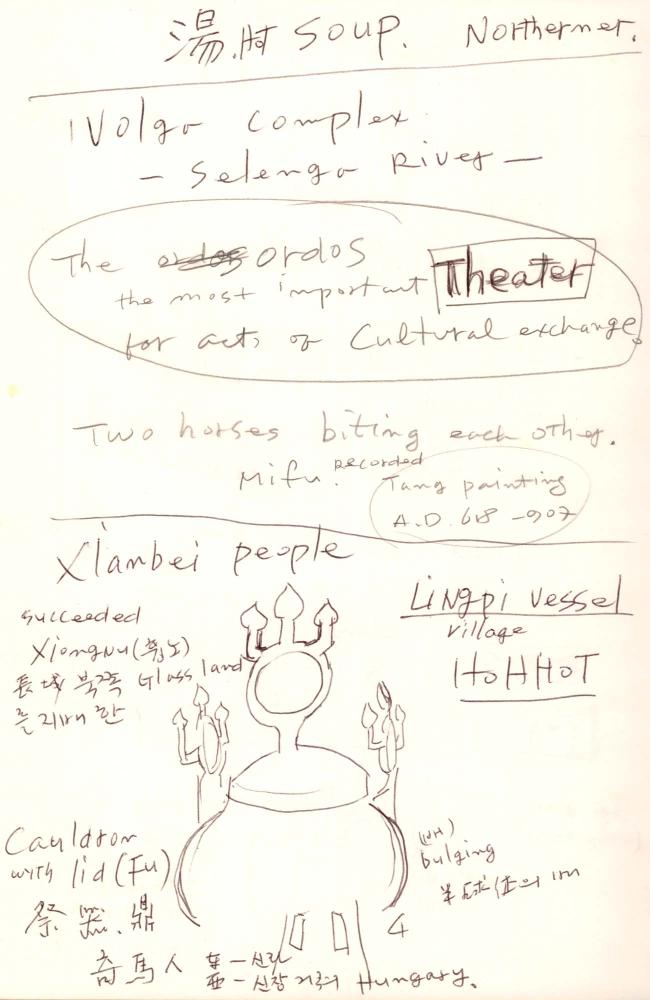 湯. SOUP. Northerner.
IVolga complex
- Selenga River -
The ordos
the most important Theater
for acts of Cultural exchange.
Two horses biting each other.
Mifu. Recorded
Tang painting
A.D. 618 -907
Xianbei people
succeeded
Xiongnu (흉노)
長城 북쪽 Glass land
를 지배한
Lingpi vessel
village
HOHHOT
Cauldron
with lid (Fu)
祭 鼎
(배)
bulging
半球体의
4
馬人 신라
Hungary.